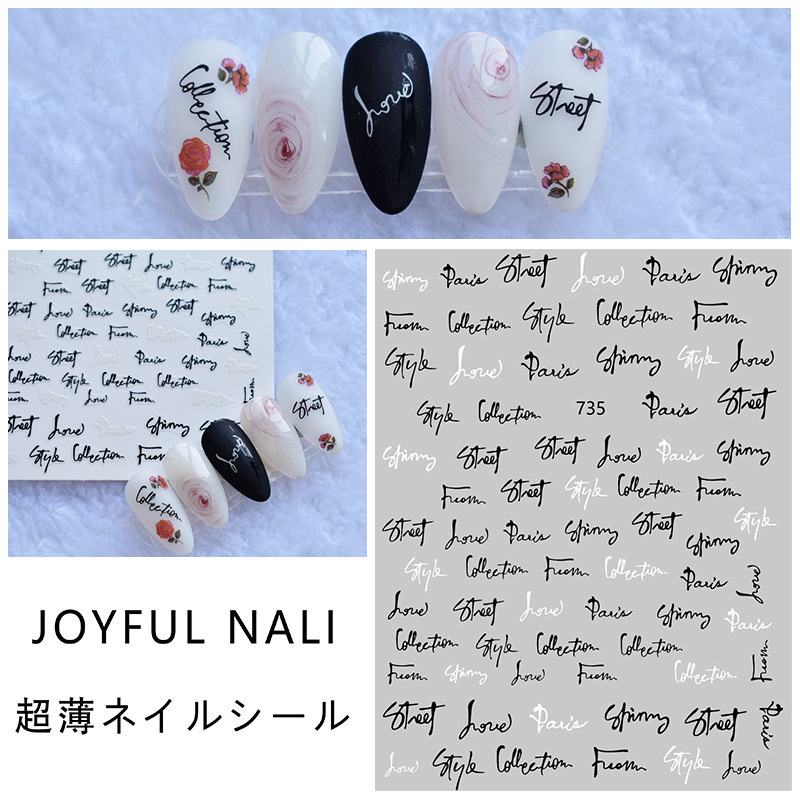 Collection
Love
Street
Street Love Spinny
From Street Collection From
Street Love Paris Spinny Street
Spinny
Collection From
Love
Street Paris Spinny
Collection Style Collection Collection
Love From
Street Love Spinny
Style Collection From
Street
Love
Collection
JOYFUL NALI
超薄ネイルシール
Spinny Paris Street Love Paris Spinny
From Collection Style Collection From
Style Love Paris Spinny Style Love
Style Collection 735 Paris Street
Spinny Street Street Love Paris Spinny
From Street Style Collection From
Street Love Paris Spinny Street Spinny Style
Style Collection From Collection Paris Love
Love Street Love Paris Spinny Paris
Collection Style Collection Collection
From Spinny Love From Collection From
Street Love Paris Spinny Street Paris
Love Style Collection From Style Love